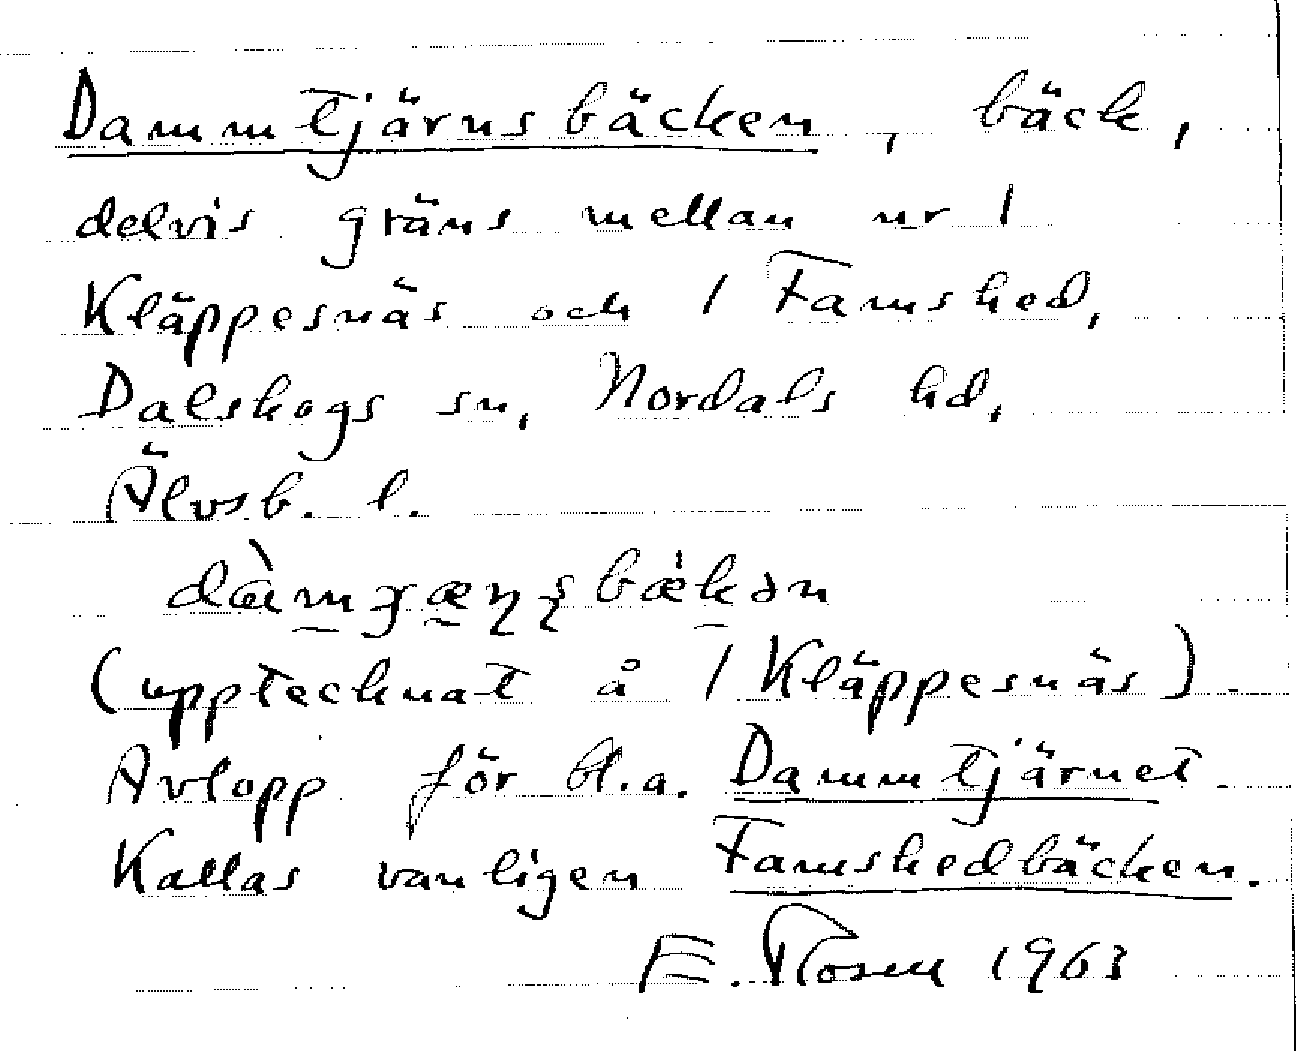 Dammtjärnsbäcken, bäck,
delvis gräns mellan nr 1
Kläppesnäs och 1 Famshed,
Dalskogs sn, Nordals hd,
Älvsb. l.
(upptecknat å 1 Kläppesnäs).
Avlopp för bl.a. Dammtjärnet.
Kallas vanligen Famshedbäcken.
E. Rosell 1963